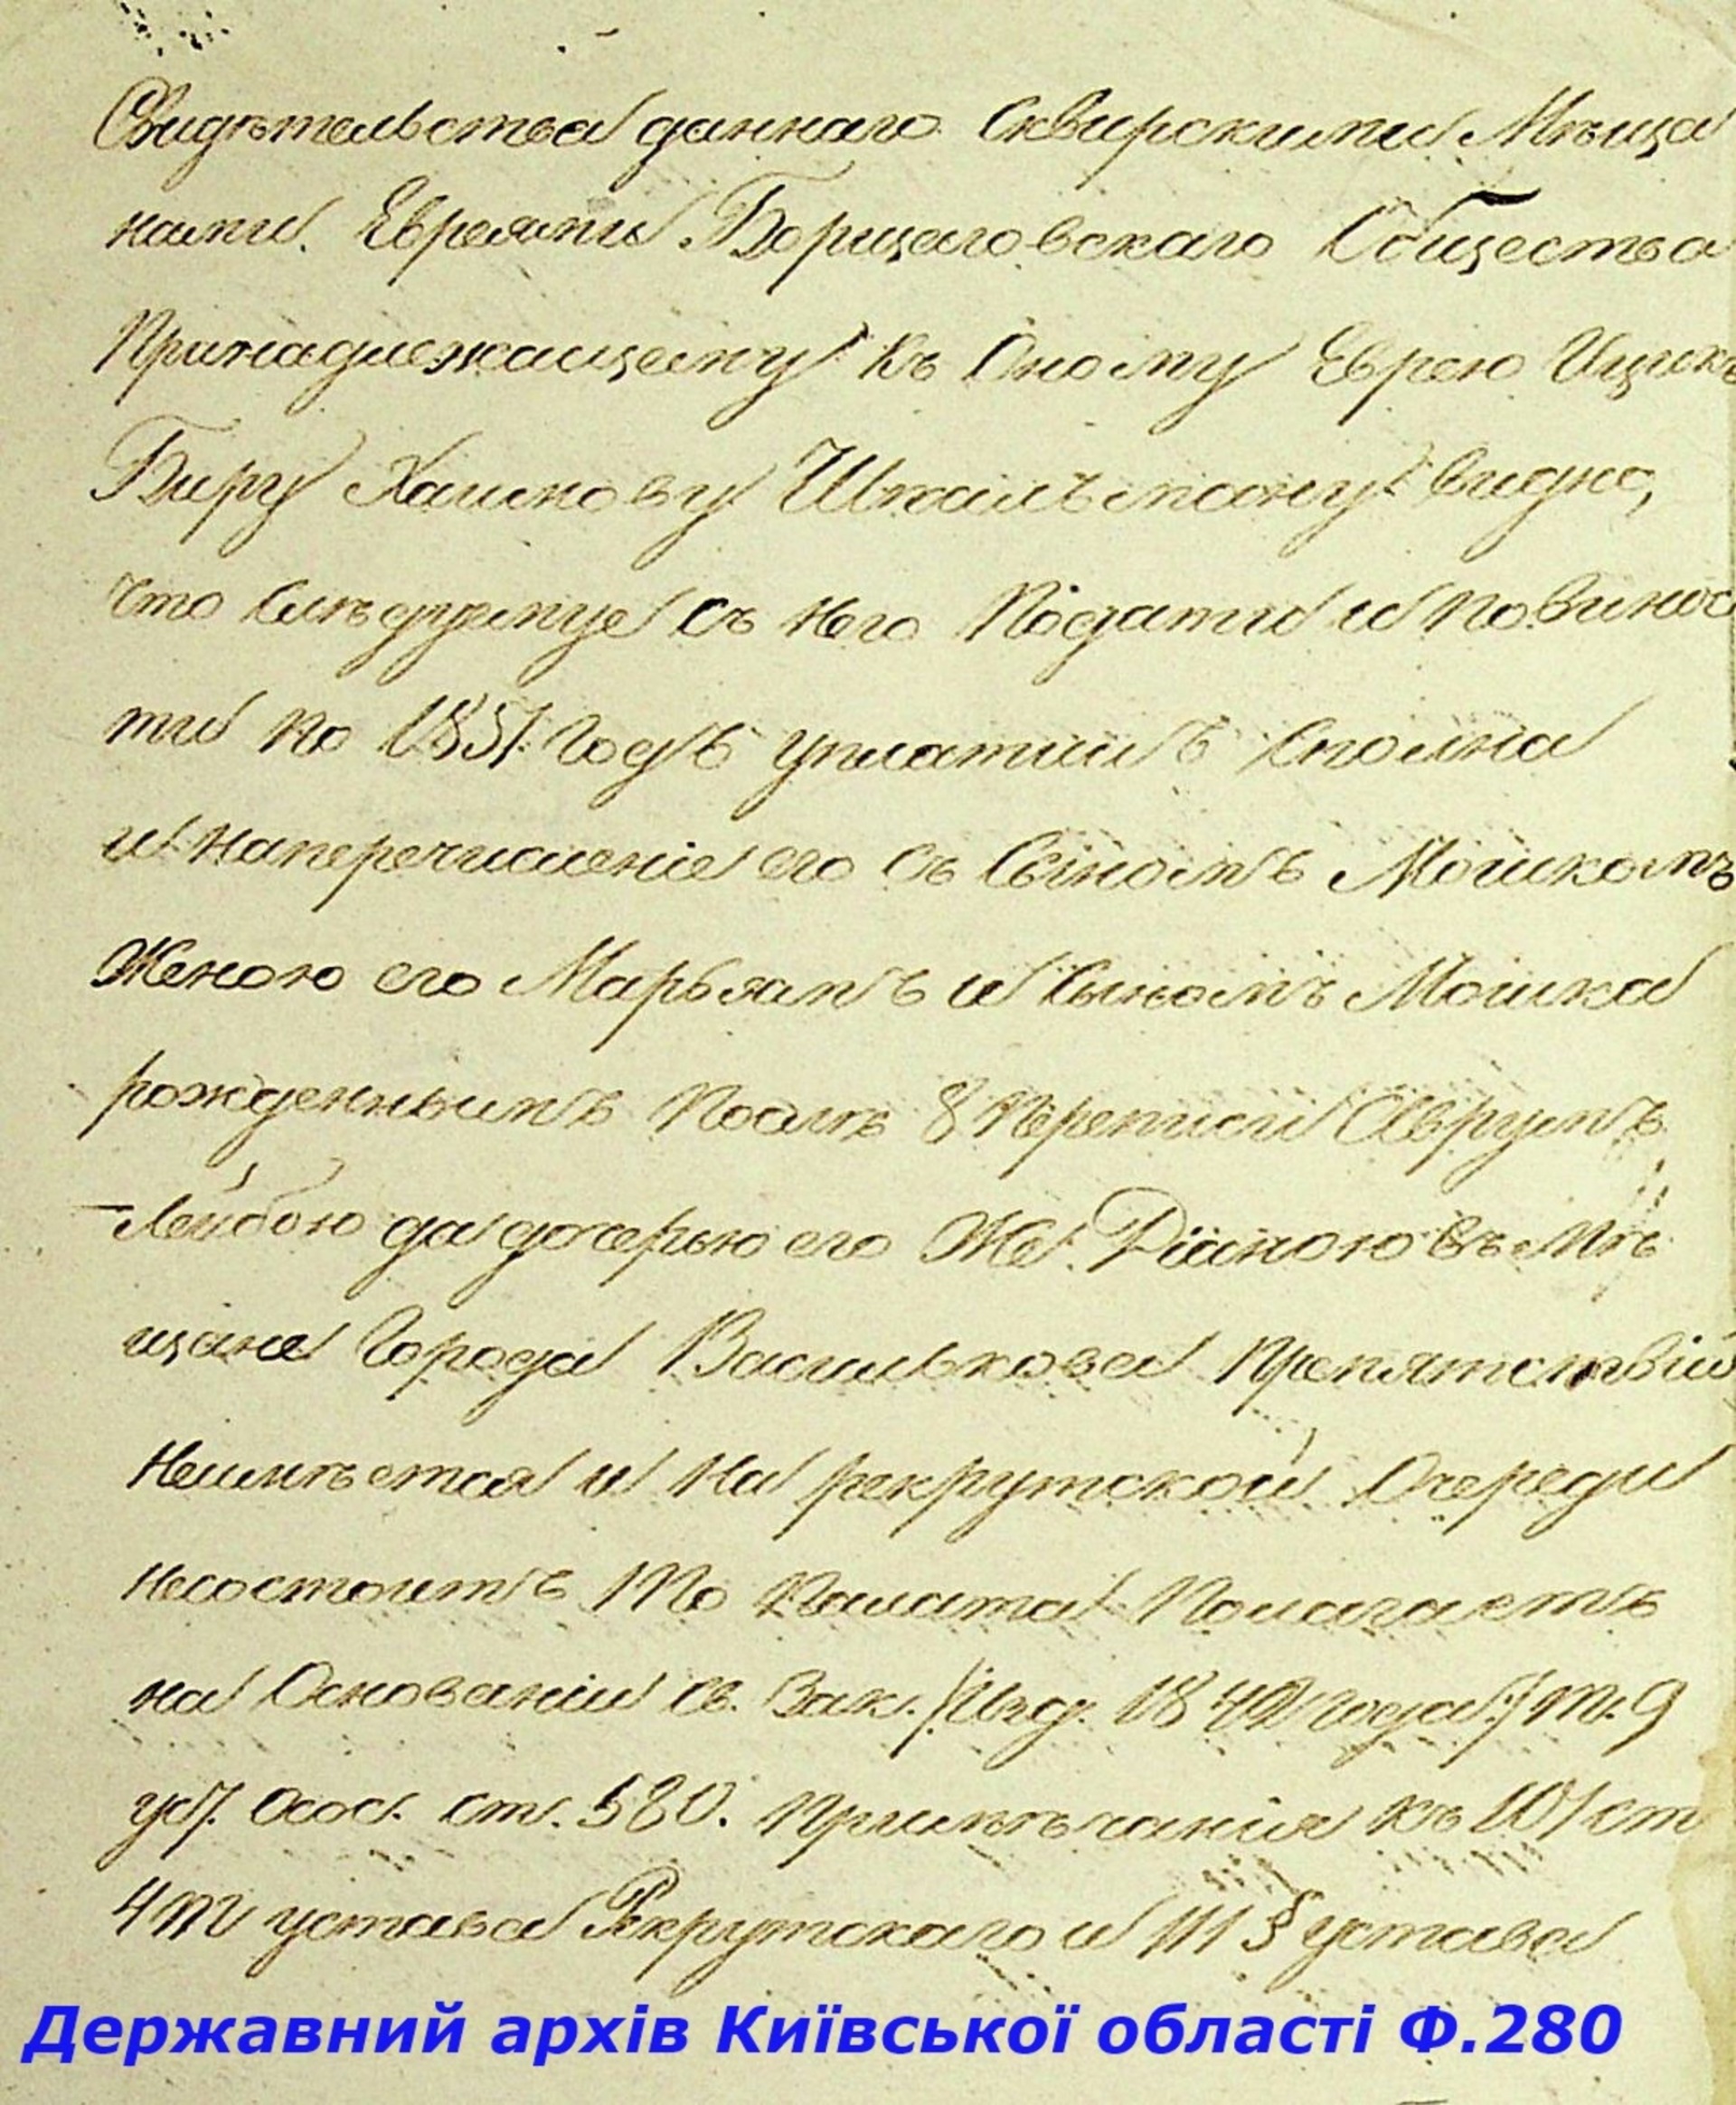 Свидѣтельства даннаго Сквирскими Мѣща
нами Евреями Борщаговскаго Общества
Принадлежащему къ Оному Еврею Ицик
Беру Хаимову Шкальману видно,
что Слѣдуемые съ него Подати и повинос
ти по 1851 Годъ уплатилъ Сполна
и наперечисленіе его съ Сыномъ Мошкомъ
Женою его Марьямъ и Сыномъ Мошка
рожденнымъ Послѣ 8 Переписи Аврумъ
Лейбою да дочерью его Же Дйною въ Мѣ
щане Города Василькова Препятствій
Неимѣется и на рекрутской Очереди
несостоитъ То Палата Полагаетъ
на Основаніи Св. Зак. /Изд. 1842 года/ т. 9
ст. 580. Примѣчанія къ 101 ст
4 т устава Рекрутскаго и 111 § устава
Державний архів Київської області Ф.280